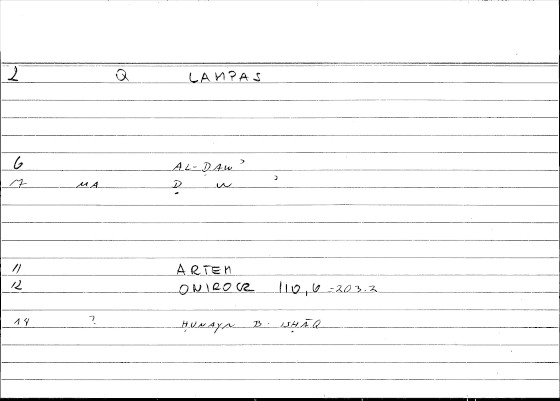 2 Q LAMPAS
6 AL-ḌAWʾ
7 MA Ḍ W ʾ
11 ARTEM
12 ONIROCR 110,6-203.2
14 ? ḤUNAYN B. ISḤĀQ